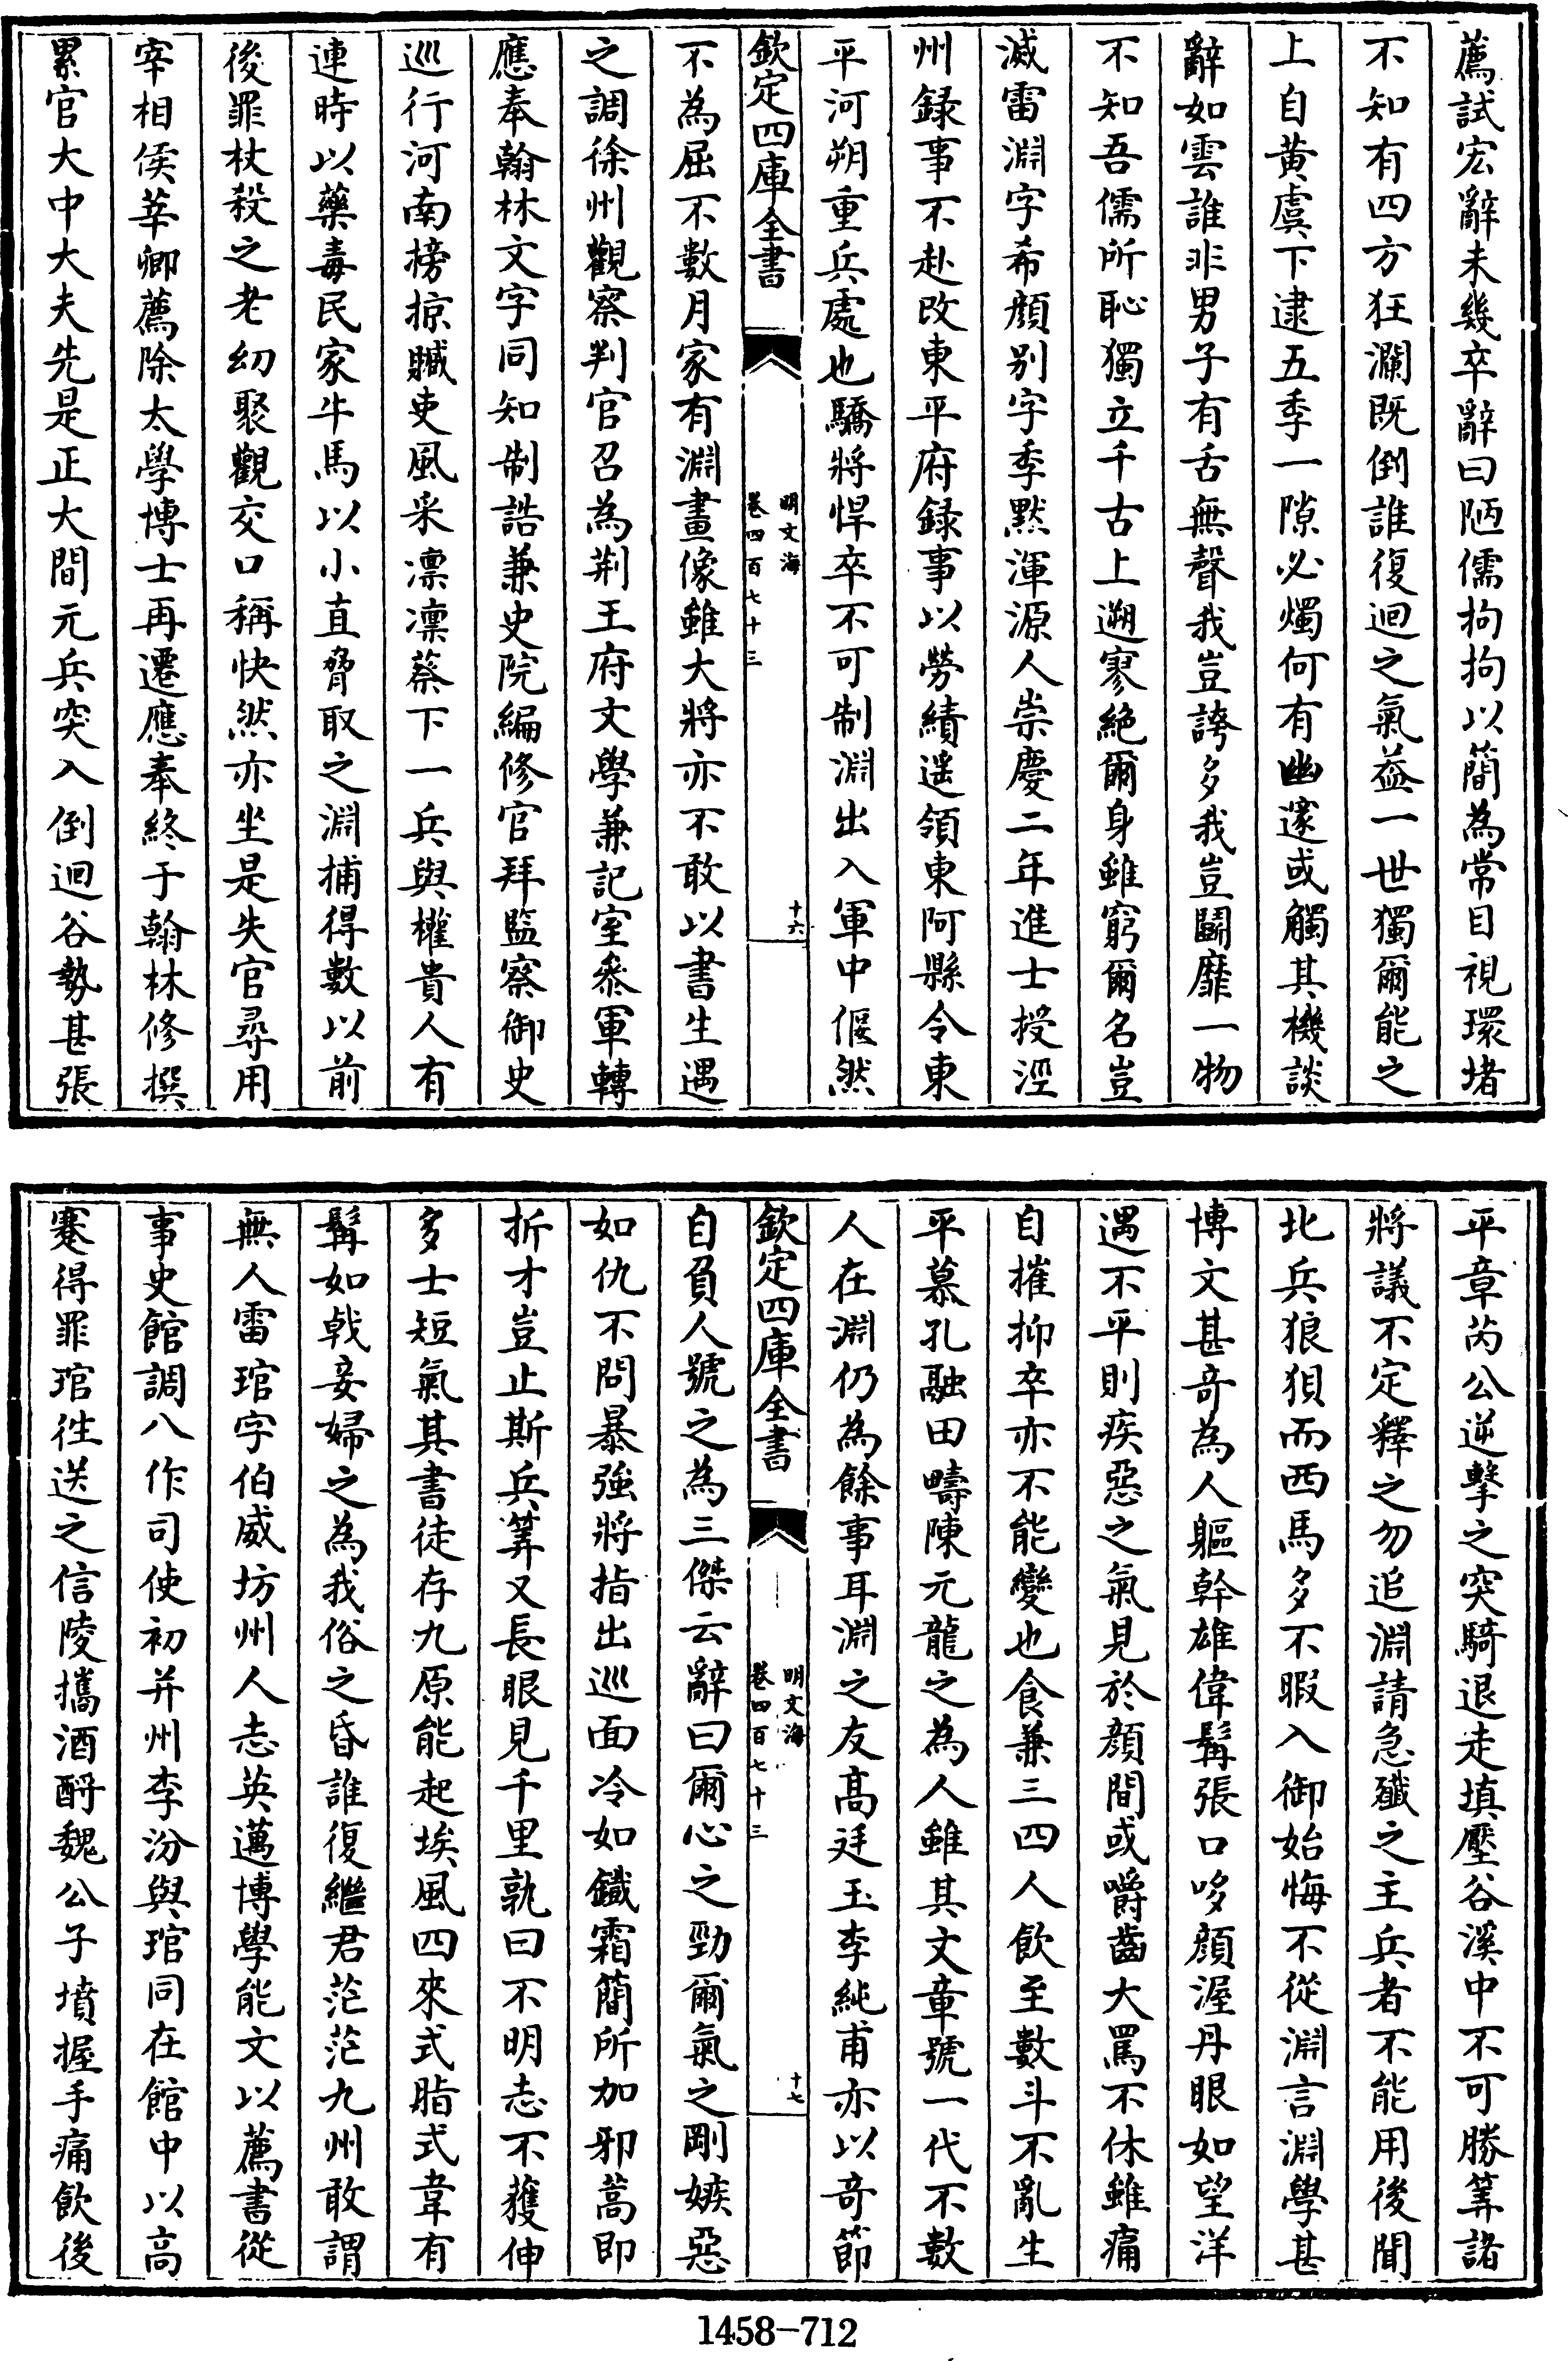 薦試宏辭未幾卒辭曰陋儒拘拘以簡為常目視環堵
不知有四方狂瀾既倒誰復迴之氣益一世獨爾能之
上自黃虞下逮五季一隙必燭何有幽邃或觸其機談
辭如雲誰非男子有舌無聲我豈誇多我豈鬭靡一物
不知吾儒所恥獨立千古上遡寥絕爾身雖窮爾名豈
滅雷淵字希顏别字季默渾源人崇慶二年進士授涇
州録事不赴改東平府録事以勞績遥領東阿縣令東
平河朔重兵處也驕將悍卒不可制淵出入軍中偃然
欽定四庫全書
明文海
卷四百七十三
十六
不為屈不數月家有淵畫像雖大將亦不敢以書生遇
之調徐州觀察判官召為荆王府文學兼記室叅軍轉
應奉翰林文字同知制誥兼史院編修官拜監察御史
巡行河南榜掠贓吏風采凛凛蔡下一兵與權貴人有
連時以藥毒民家牛馬以小直脅取之淵捕得數以前
後罪杖殺之老幼聚觀交口稱快然亦坐是失官尋用
宰相侯莘卿薦除太學博士再遷應奉終于翰林修撰
累官大中大夫先是正大間元兵突入倒迴谷勢甚張
平章芮公逆擊之突騎退走填壓谷溪中不可勝筭諸
將議不定釋之勿追淵請急殱之主兵者不能用後聞
北兵狼狽而西馬多不暇入御始悔不從淵言淵學甚
博文甚奇為人軀幹雄偉髯張口哆顔渥丹眼如望洋
遇不平則疾惡之氣見於顔間或嚼齒大罵不休雖痛
自摧抑卒亦不能變也食兼三四人飲至數斗不亂生
平慕孔融田疇陳元龍之為人雖其文章號一代不數
人在淵仍為餘事耳淵之友髙廷玉李純甫亦以奇節
欽定四庫全書
明文海
卷四百七十三
十七
自負人號之為三傑云辭曰爾心之勁爾氣之剛嫉惡
如仇不問暴強將指出巡面冷如鐵霜簡所加邪蒿即
折才豈止斯兵筭又長眼見千里孰曰不明志不獲伸
多士短氣其書徒存九原能起埃風四來式脂式韋有
髯如戟妾婦之為我俗之昏誰復繼君茫茫九州敢謂
無人雷琯字伯威坊州人志英邁博學能文以薦書從
事史館調八作司使初并州李汾與琯同在館中以高
蹇得罪琯徃送之信陵攜酒酹魏公子墳握手痛飲後
1458-712